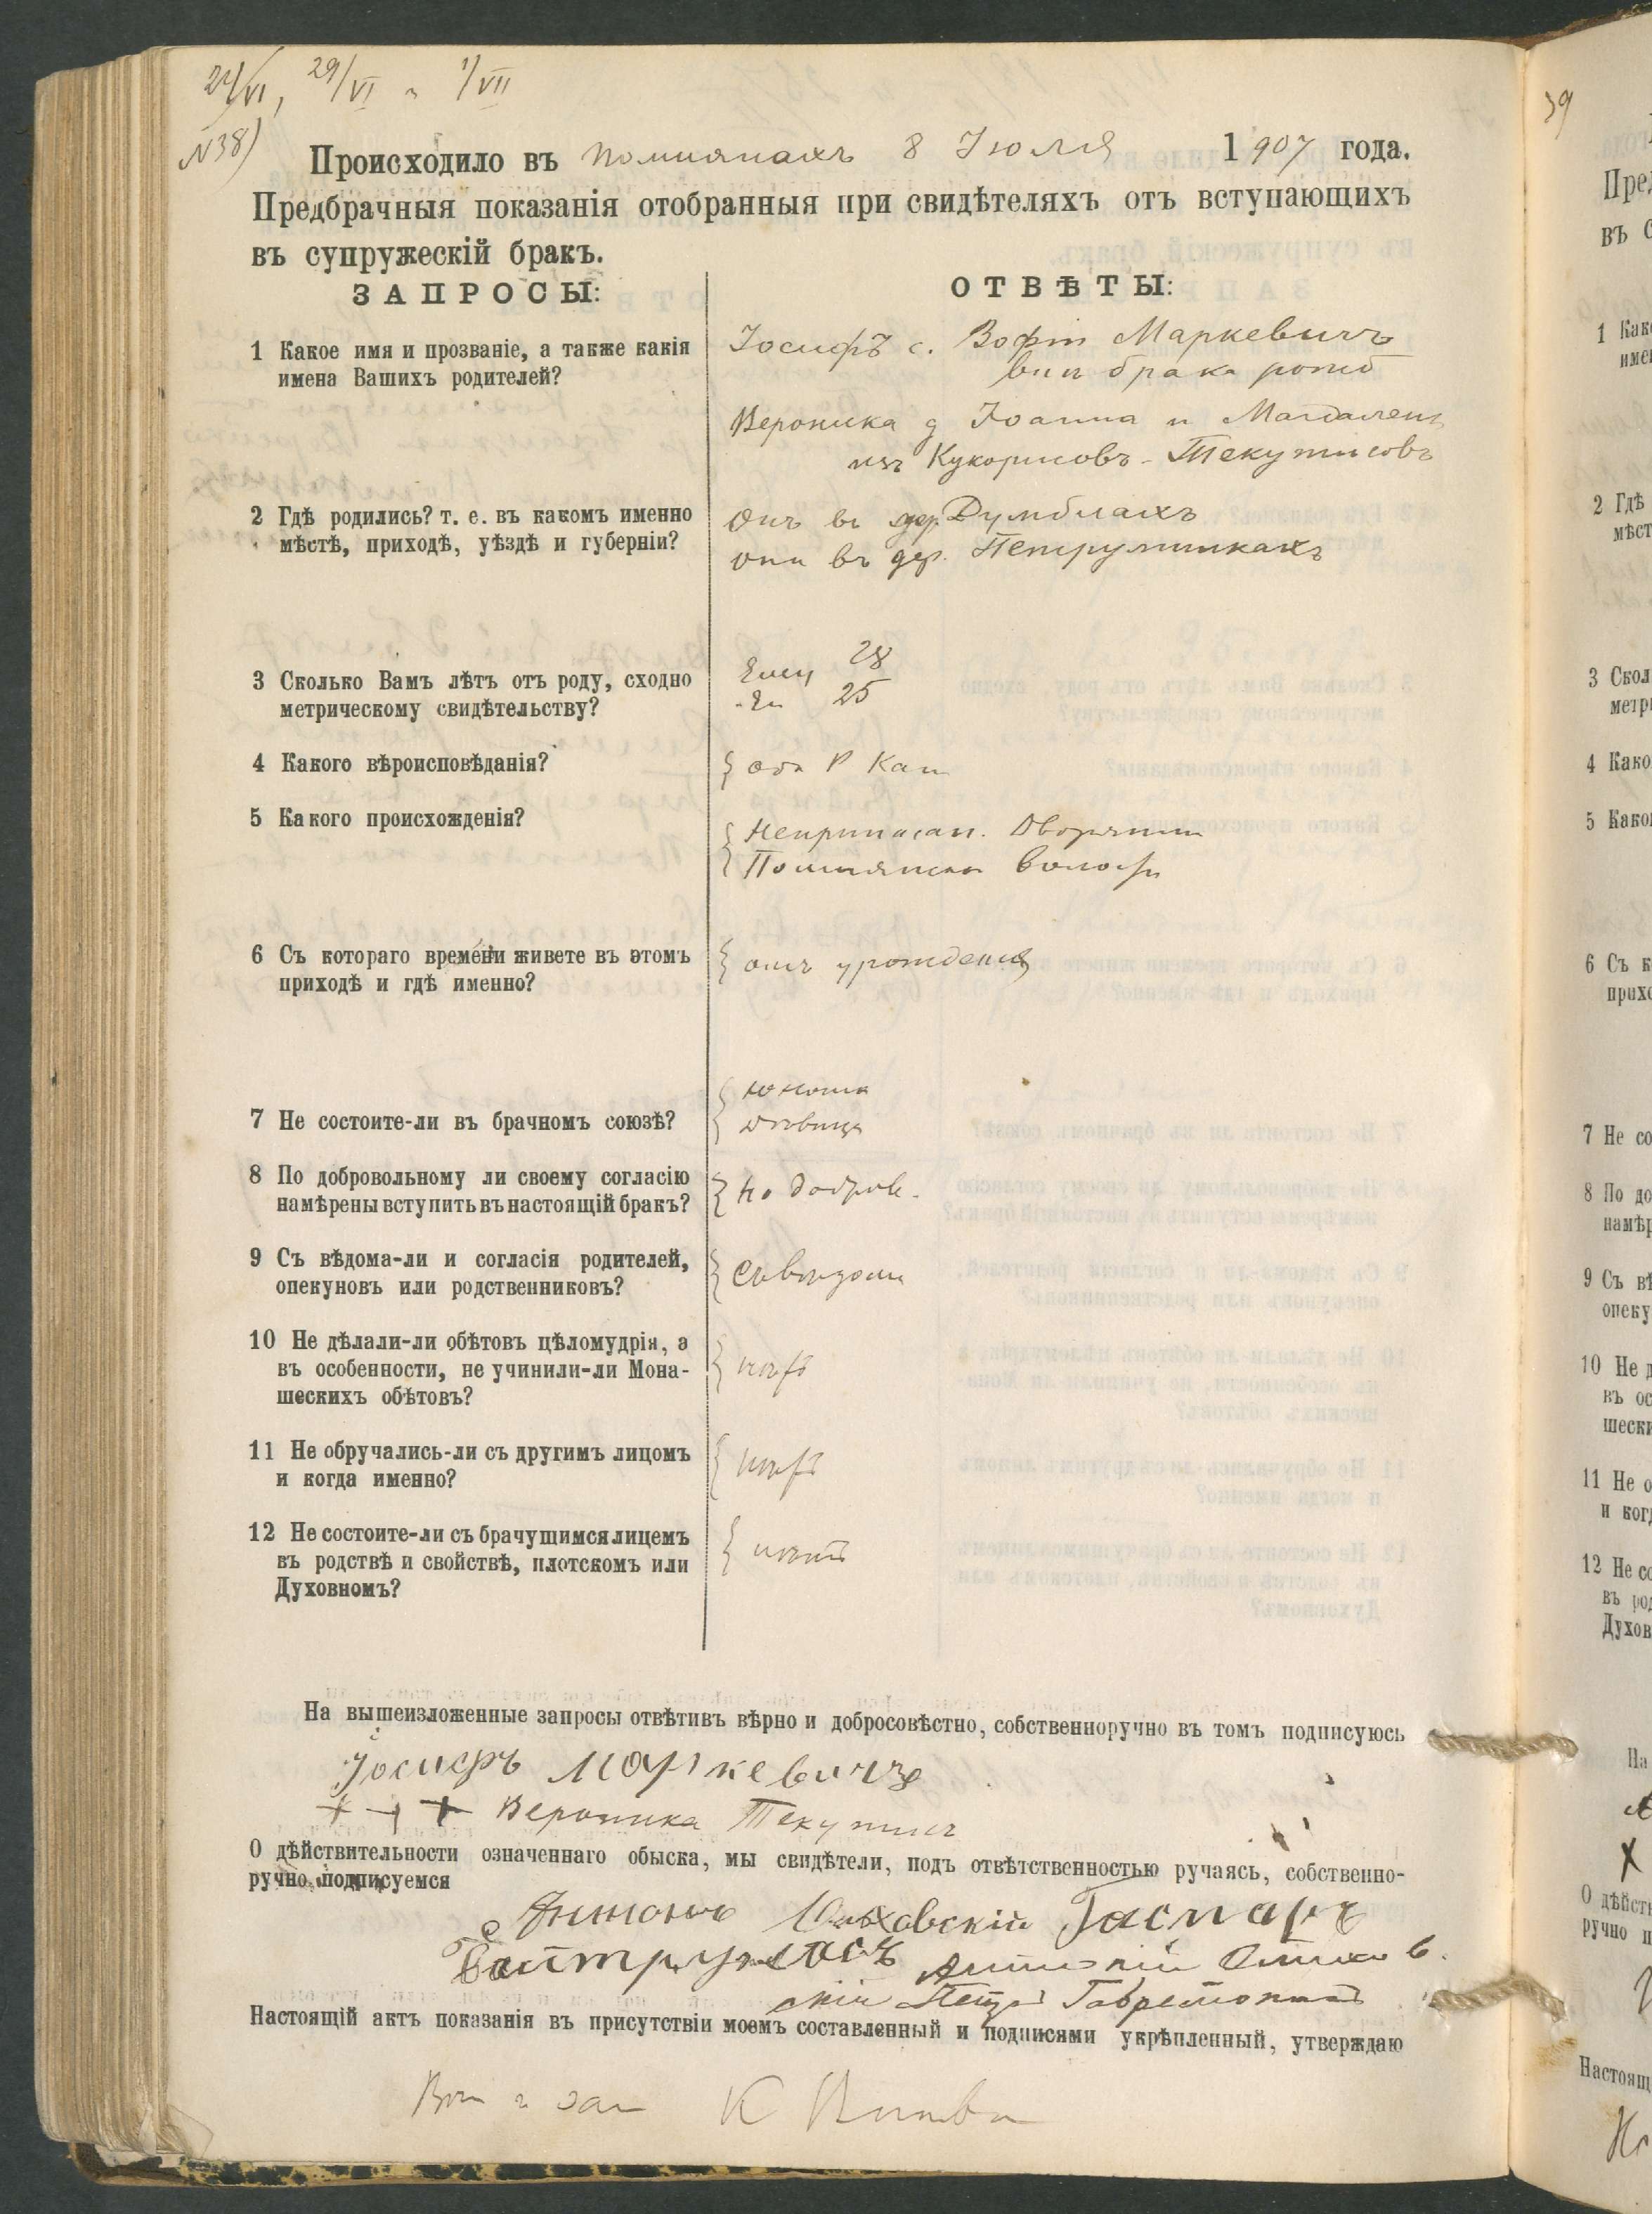 24/VI, 29/VI и 1/VII
N38)
Происходило въ Помпянахъ 8 Іюля 1907 года.
Предбрачныя показанія отобранныя при свидѣтеляхъ отъ вступающихъ
въ супружескій бракъ.
ЗАПРОСЫ:
ОТВѢТЫ:
1 Какое имя и прозваніе, а также какія
имена Вашихъ родителей?
Іосифъ с. Маркевичъ
внѣ брака
Вероника д Іоанна и Магдалены
изъ Кукорисовъ - Текутисовъ
2 Гдѣ родились? т. е. въ какомъ именно
мѣстѣ, приходѣ, уѣздѣ и губерніи?
Онъ въ дер. Думблахъ
она въ дер. Петрумишкахъ
3 Сколько Вамъ лѣтъ отъ роду, сходно
метрическому свидѣтельству?
Ему 28
Ей 25
4 Какого вѣроисповѣданія?
оба Р Кат
5 Какого происхожденія?
Неприписан. Дворянин
Помпянской волости
6 Съ котораго времени живете въ этомъ
приходѣ и гдѣ именно?
отъ урожденія
7 Не состоите-ли въ брачномъ союзѣ?
юноша
дѣвица
8 По добровольному ли своему согласію
намѣрены вступить въ настоящій бракъ?
по добров.
9 Съ вѣдома-ли и согласія родителей,
опекуновъ или родственниковъ?
Съ вѣдома
10 Не дѣлали-ли обѣтовъ цѣломудрія, а
въ особенности, не учинили-ли Мона-
шескихъ обѣтовъ?
нѣтъ
11 Не обручались-ли съ другимъ лицомъ
и когда именно?
нѣтъ
12 Не состоите-ли съ брачущимся лицемъ
въ родствѣ и свойствѣ, плотскомъ или
Духовномъ?
нѣтъ
На вышеизложенные запросы отвѣтивъ вѣрно и добросовѣстно, собственноручно въ томъ подписуюсь
Іосифъ Маркевичъ
+ + + Вероника Текутисъ
О дѣйствительности означеннаго обыска, мы свидѣтели, подъ отвѣтственностью ручаясь, собственно-
ручно подписуемся
Антонъ Гаспаръ
скій Петръ
Настоящій актъ показанія въ присутствіи моемъ составленный и подписями укрѣпленный, утверждаю
К
39